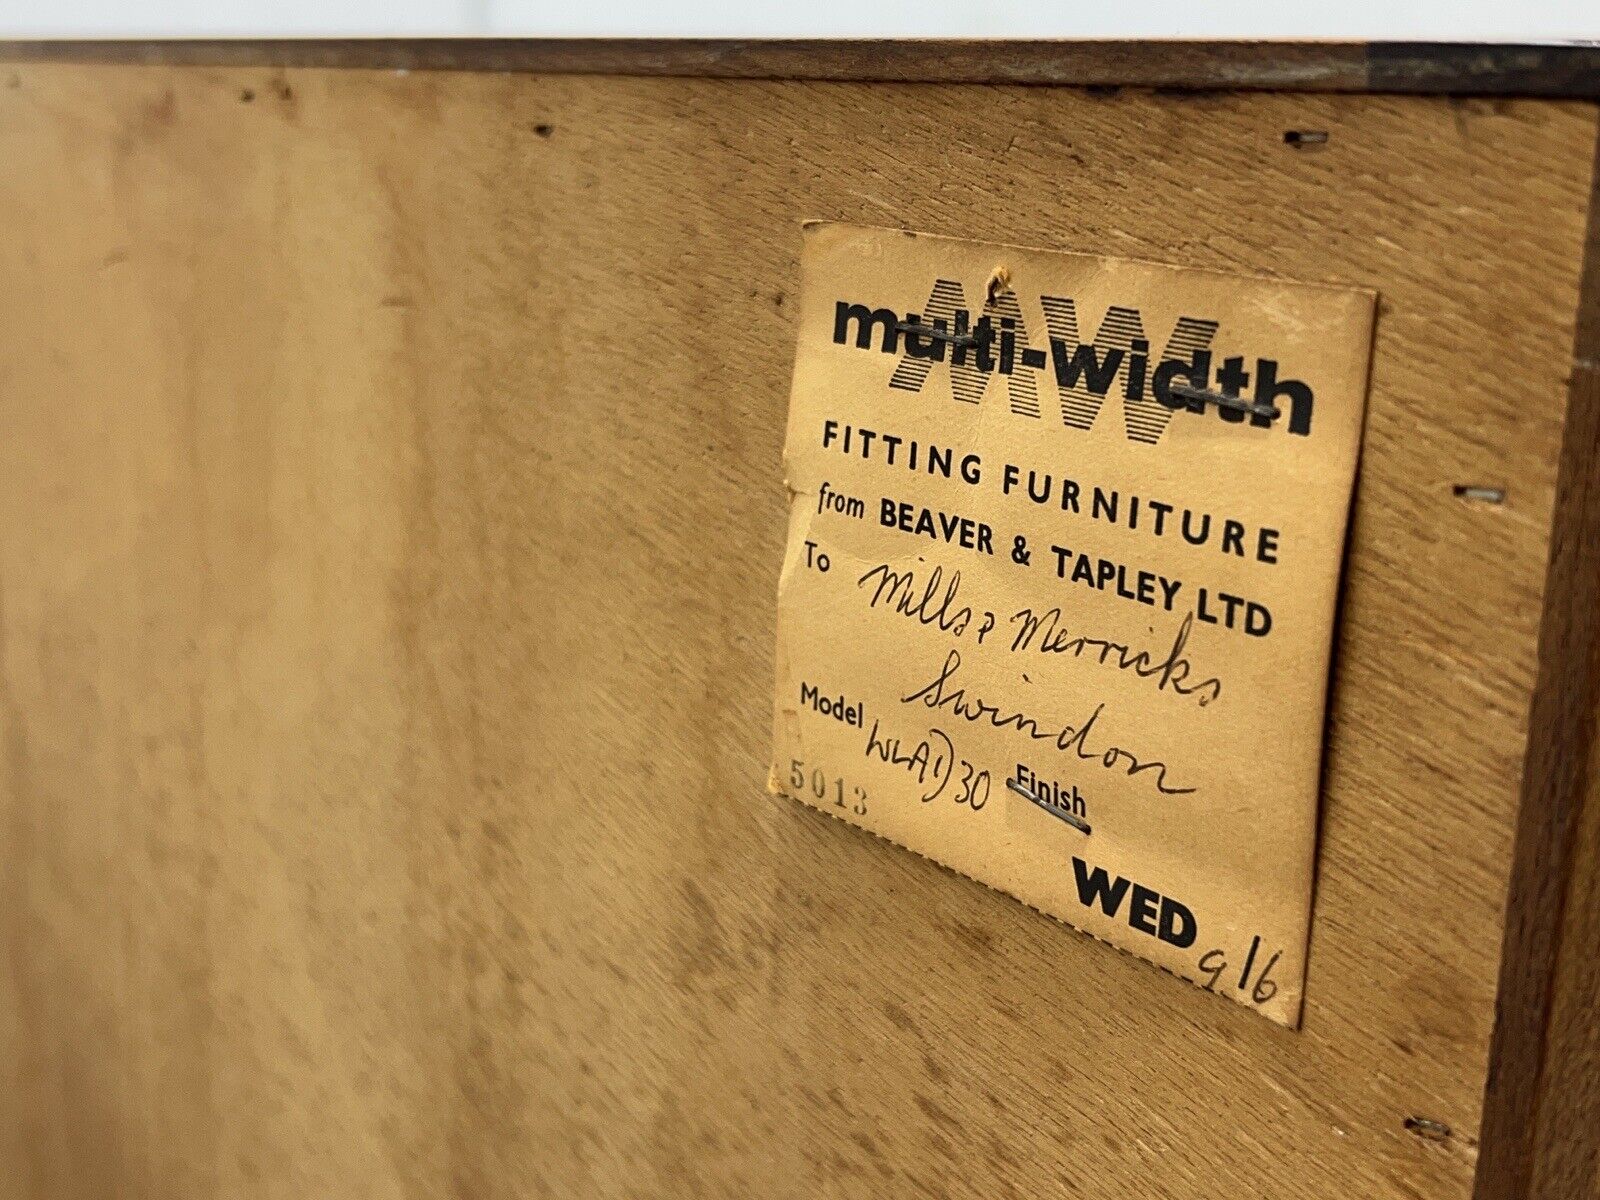 MW
multi-width
FITTING FURNITURE
from BEAVER & TAPLEY LTD
To Mills & Merricks
Swindon
Model WLAD30 Finish
5013
WED
9/6